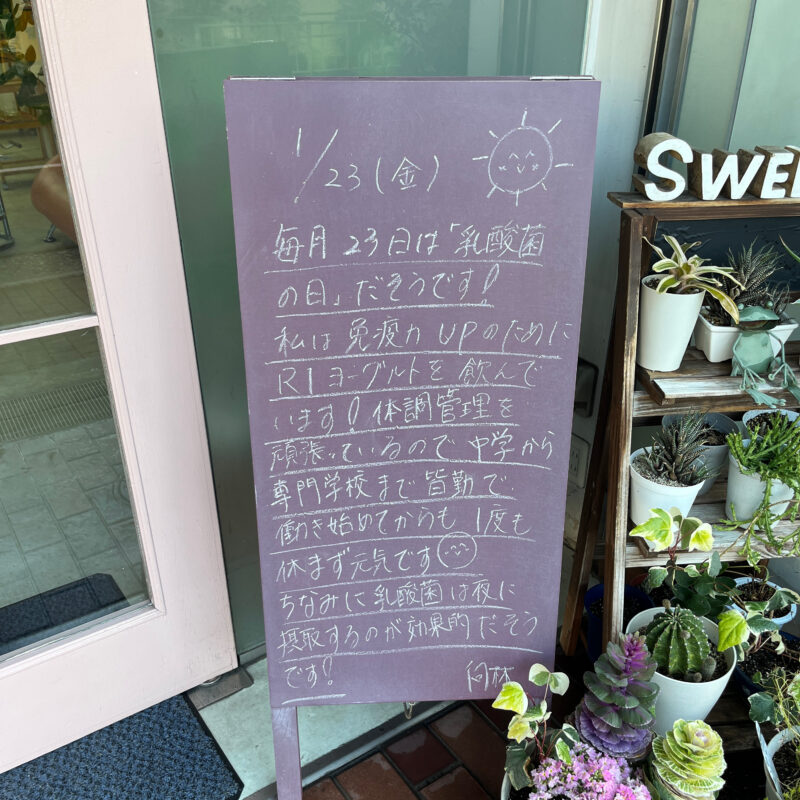 1/23(金)
毎月23日は「乳酸菌
の日」だそうです!
私は免疫力UPのために
R1ヨーグルトを飲んで
います!体調管理を
頑張っているので中学から
専門学校まで皆勤で
働き始めてからも1度も
休まず元気です
ちなみに乳酸菌は夜に
摂取するのが効果的だそう
です!
SWE